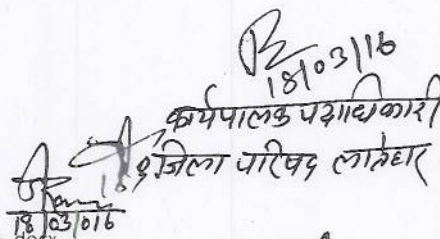 18/03/16
कार्यपालक पदाधिकारी
जिला परिषद लातेहार
18/03/016